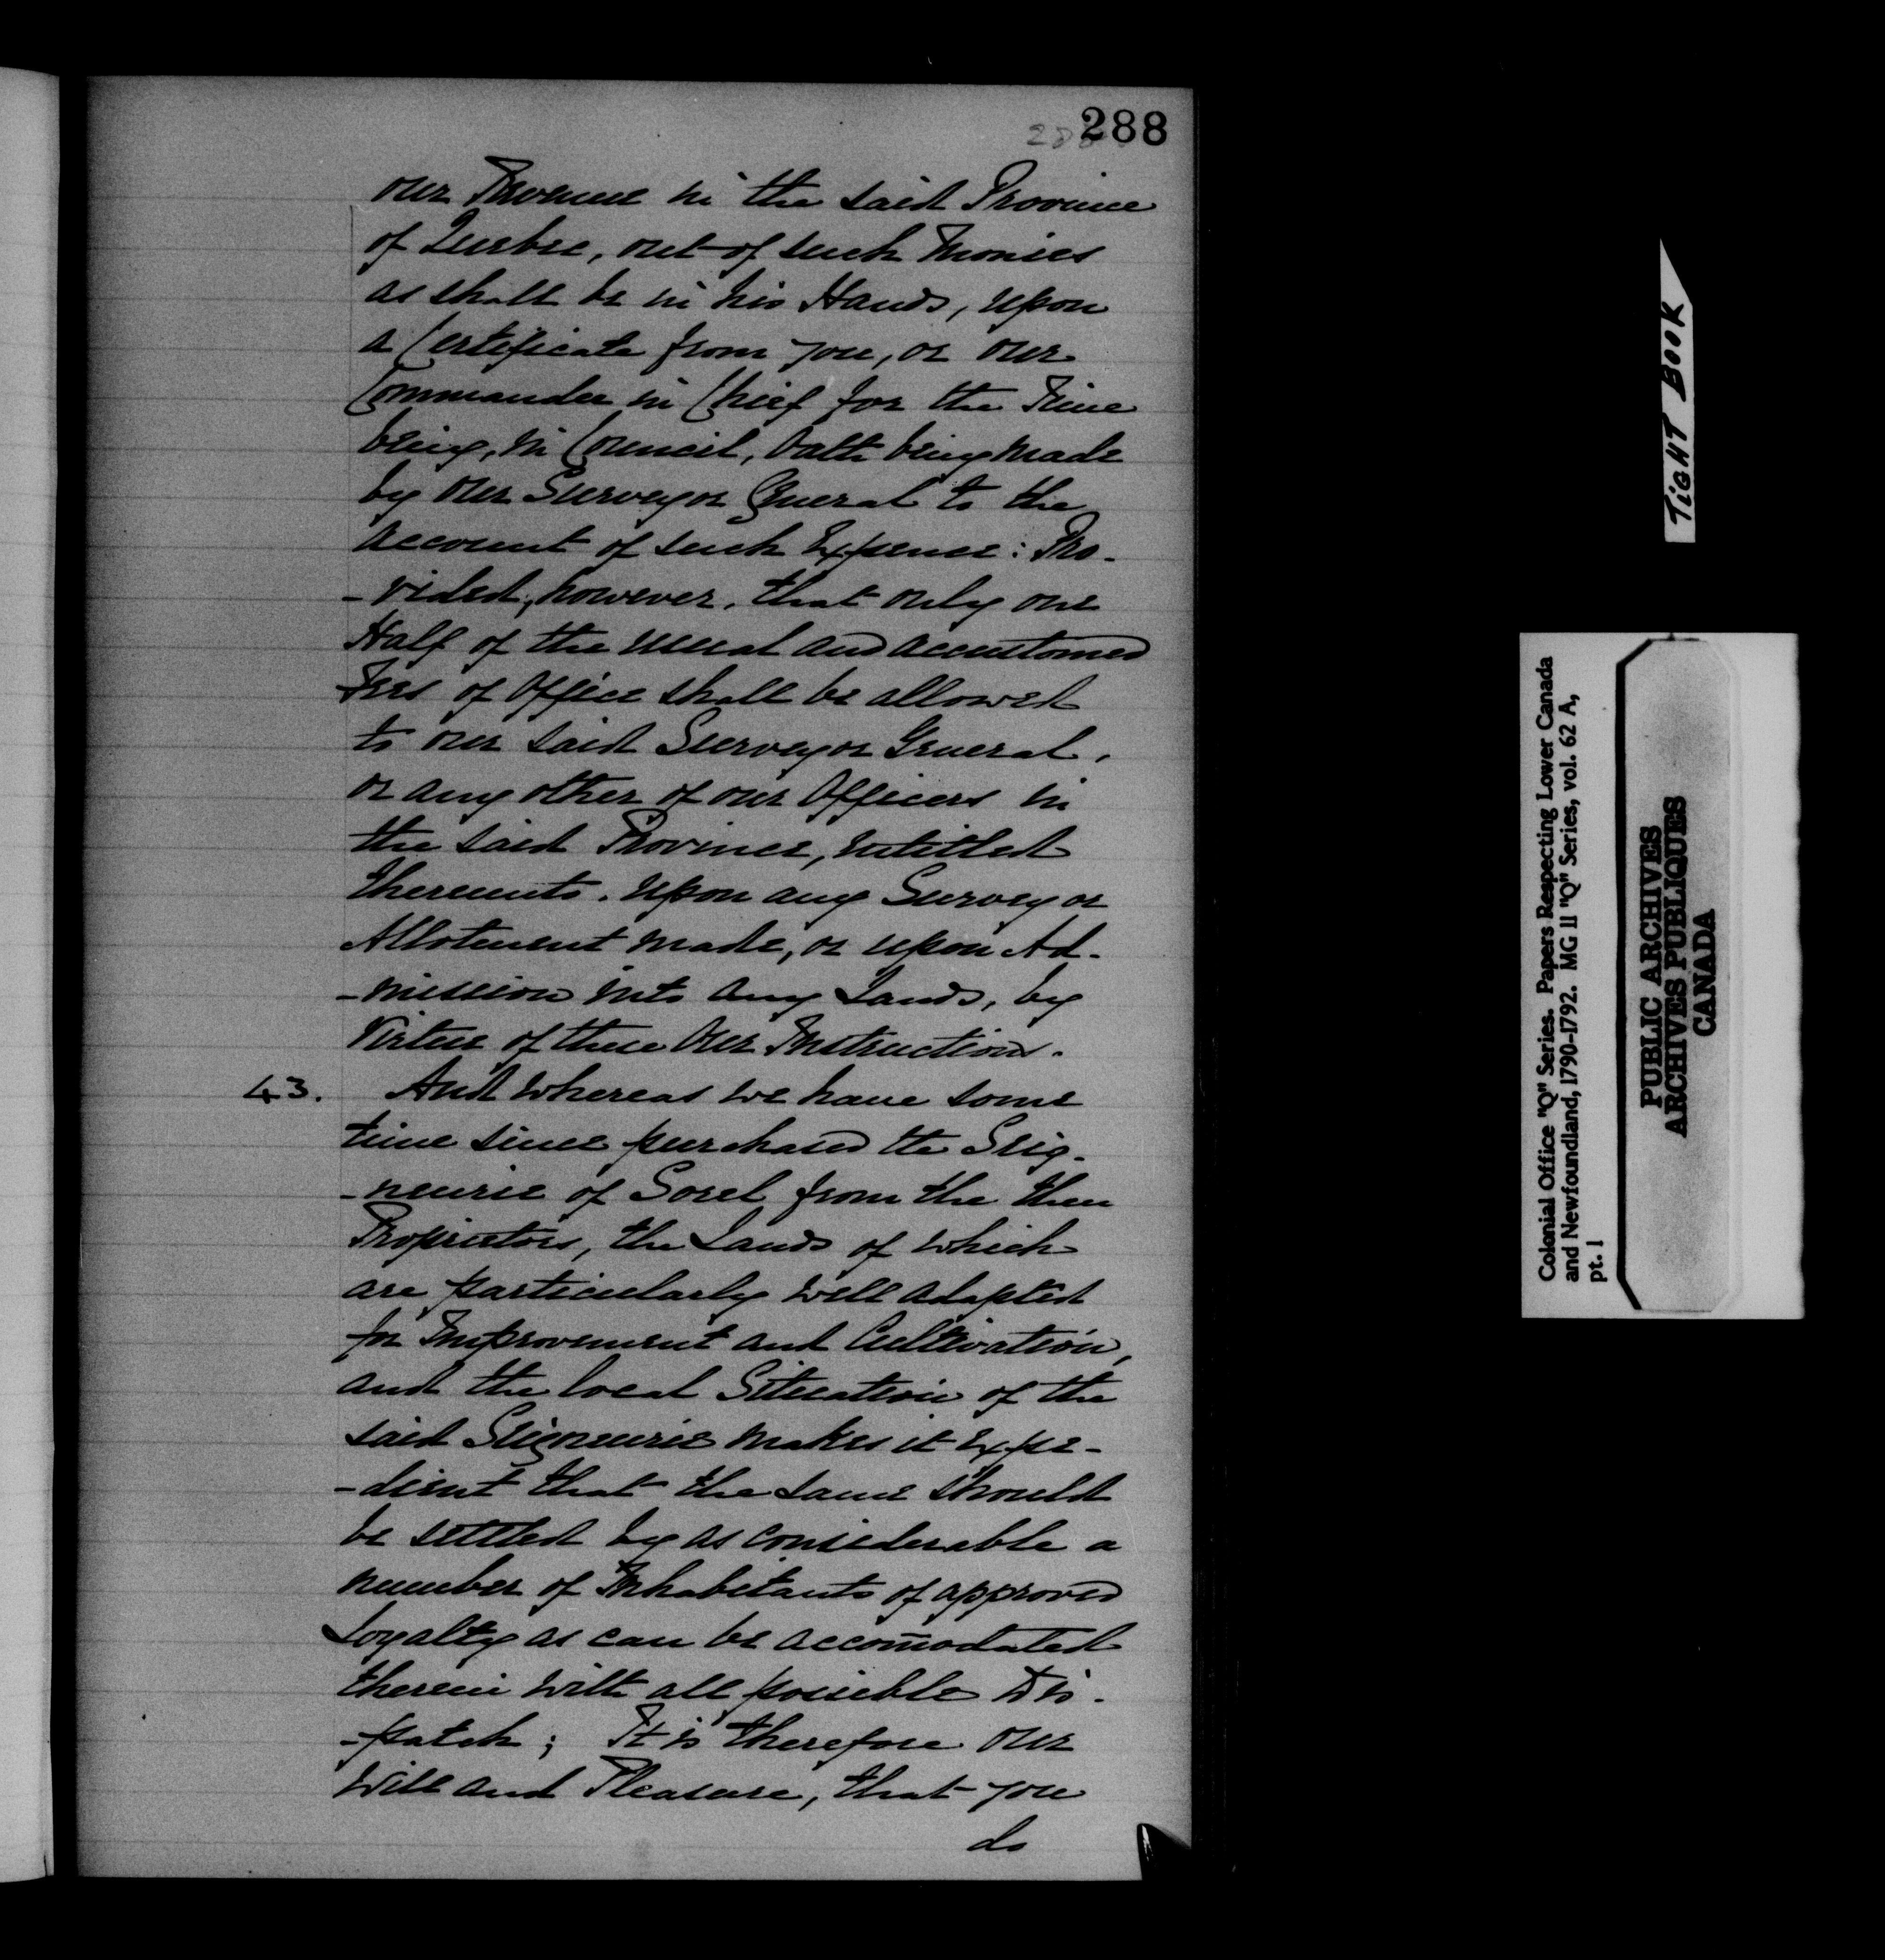 288
288
our Revenue in the said Province
of Quebec, out of such Monies
as shall be in his Hands, upon
a Certificate from you, or our
Commander in Chief for the Time
being, in Council, Oath being made
by our Surveyor General to the
account of such Expence: Pro-
-vided, however, that only one
Half of the usual and accustomed
Fees of Office shall be allowed
to our said Surveyor General,
or any other of our Officers in
the said Province, entitled
thereunto. upon any Survey or
Allotment made, or upon Ad-
-mission into any Lands, by
Virtue of these Our Instructions.
43. And whereas we have some
time since purchased the Seig-
-neurie of Sorel from the then
Proprietors, the Lands of which
are particularly well adapted
for Improvement and Cultivation,
and the local Situation of the
said Seigneurie makes it Expe-
-dient that the same should
be settled by as considerable a
number of Inhabitants of approved
Loyalty as can be accom̄odated
therein with all possible Dis-
-patch; It is therefore our
Will and Pleasure, that you
do
TIGHT BOOK
Colonial Office "Q" Series. Papers Respecting Lower Canada
and Newfoundland, 1790-1792. MG 11 "Q" Series, vol. 62 A,
pt. 1
PUBLIC ARCHIVES
ARCHIVES PUBLIQUES
CANADA